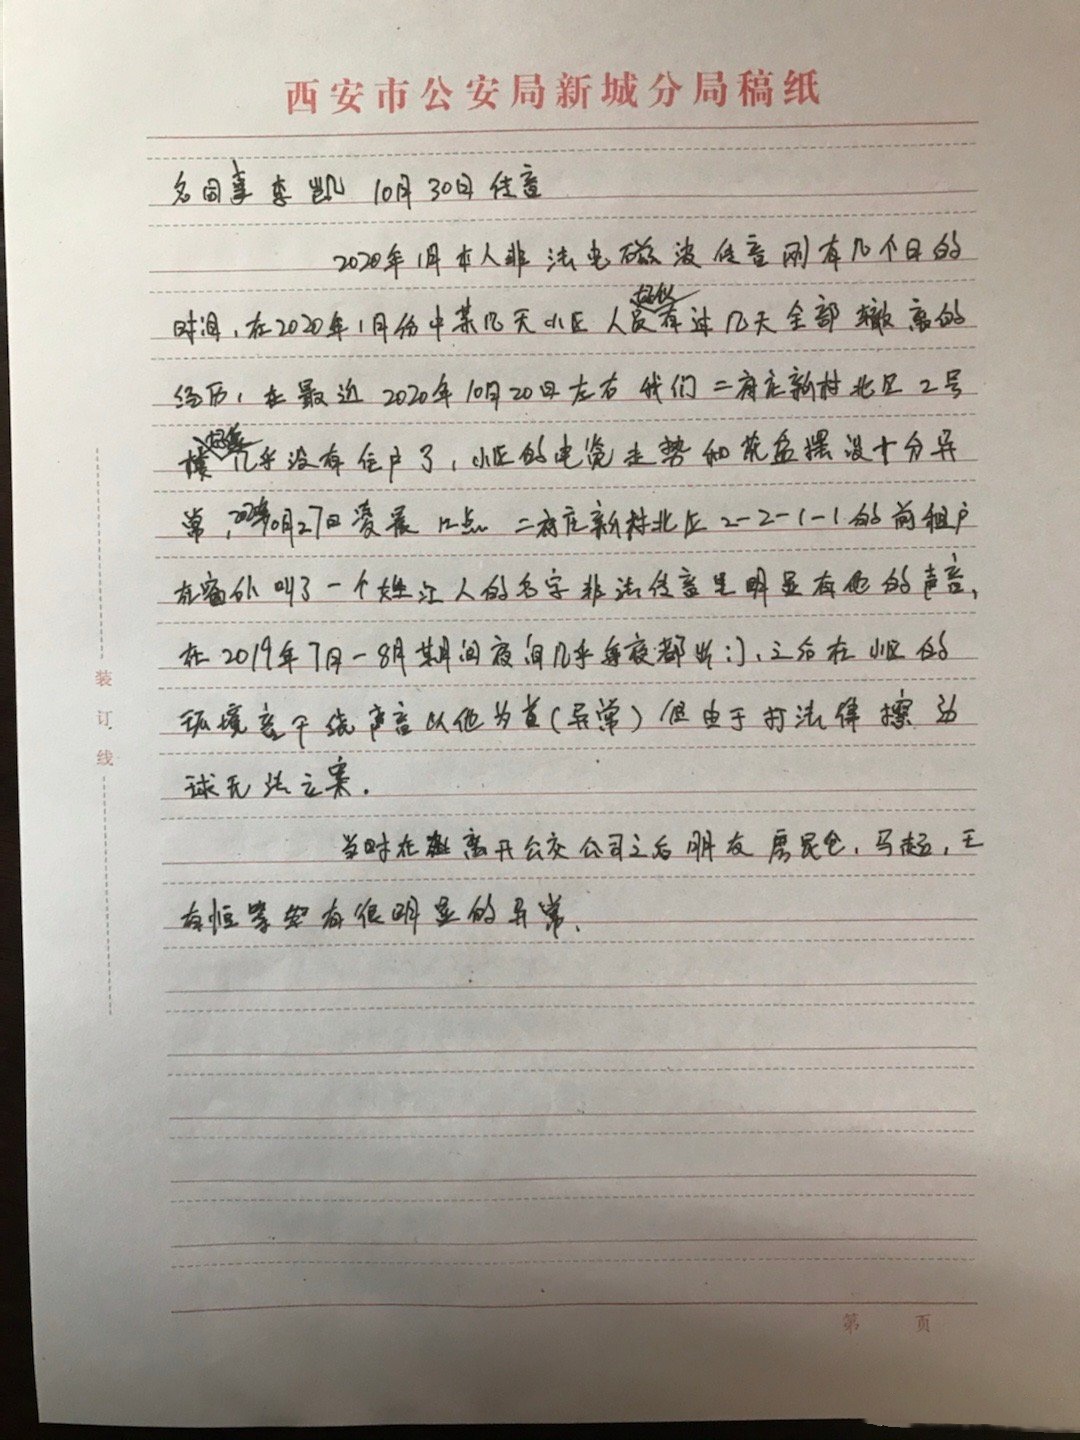 西安市公安局新城分局稿纸
名同事李凯 10月30日传音
2020年1月本人非法电磁波传音刚有几个月的
时间,在2020年1月份中某几天小区人员好似有过几天全部撤离的
经历,在最近2020年10月20日左右我们二府庄新村北区2号
楼好象几乎没有住户了,小区的电缆走势和花盆摆设十分异
常,2020年10月27日凌晨12点二府庄新村北区2-2-1-1的前租户
在窗外叫了一个姓江人的名字非法传音里明显有他的声音,
在2019年7月-8月期间夜间几乎每夜都出门,之后在小区的
环境音干绕声音以他为首(异常)但由于打法律擦边
球无法立案.
当时在离开公交公司之后朋友 民仓,马超,王
有恒等处有很明显的异常.
装
订
线
第 页